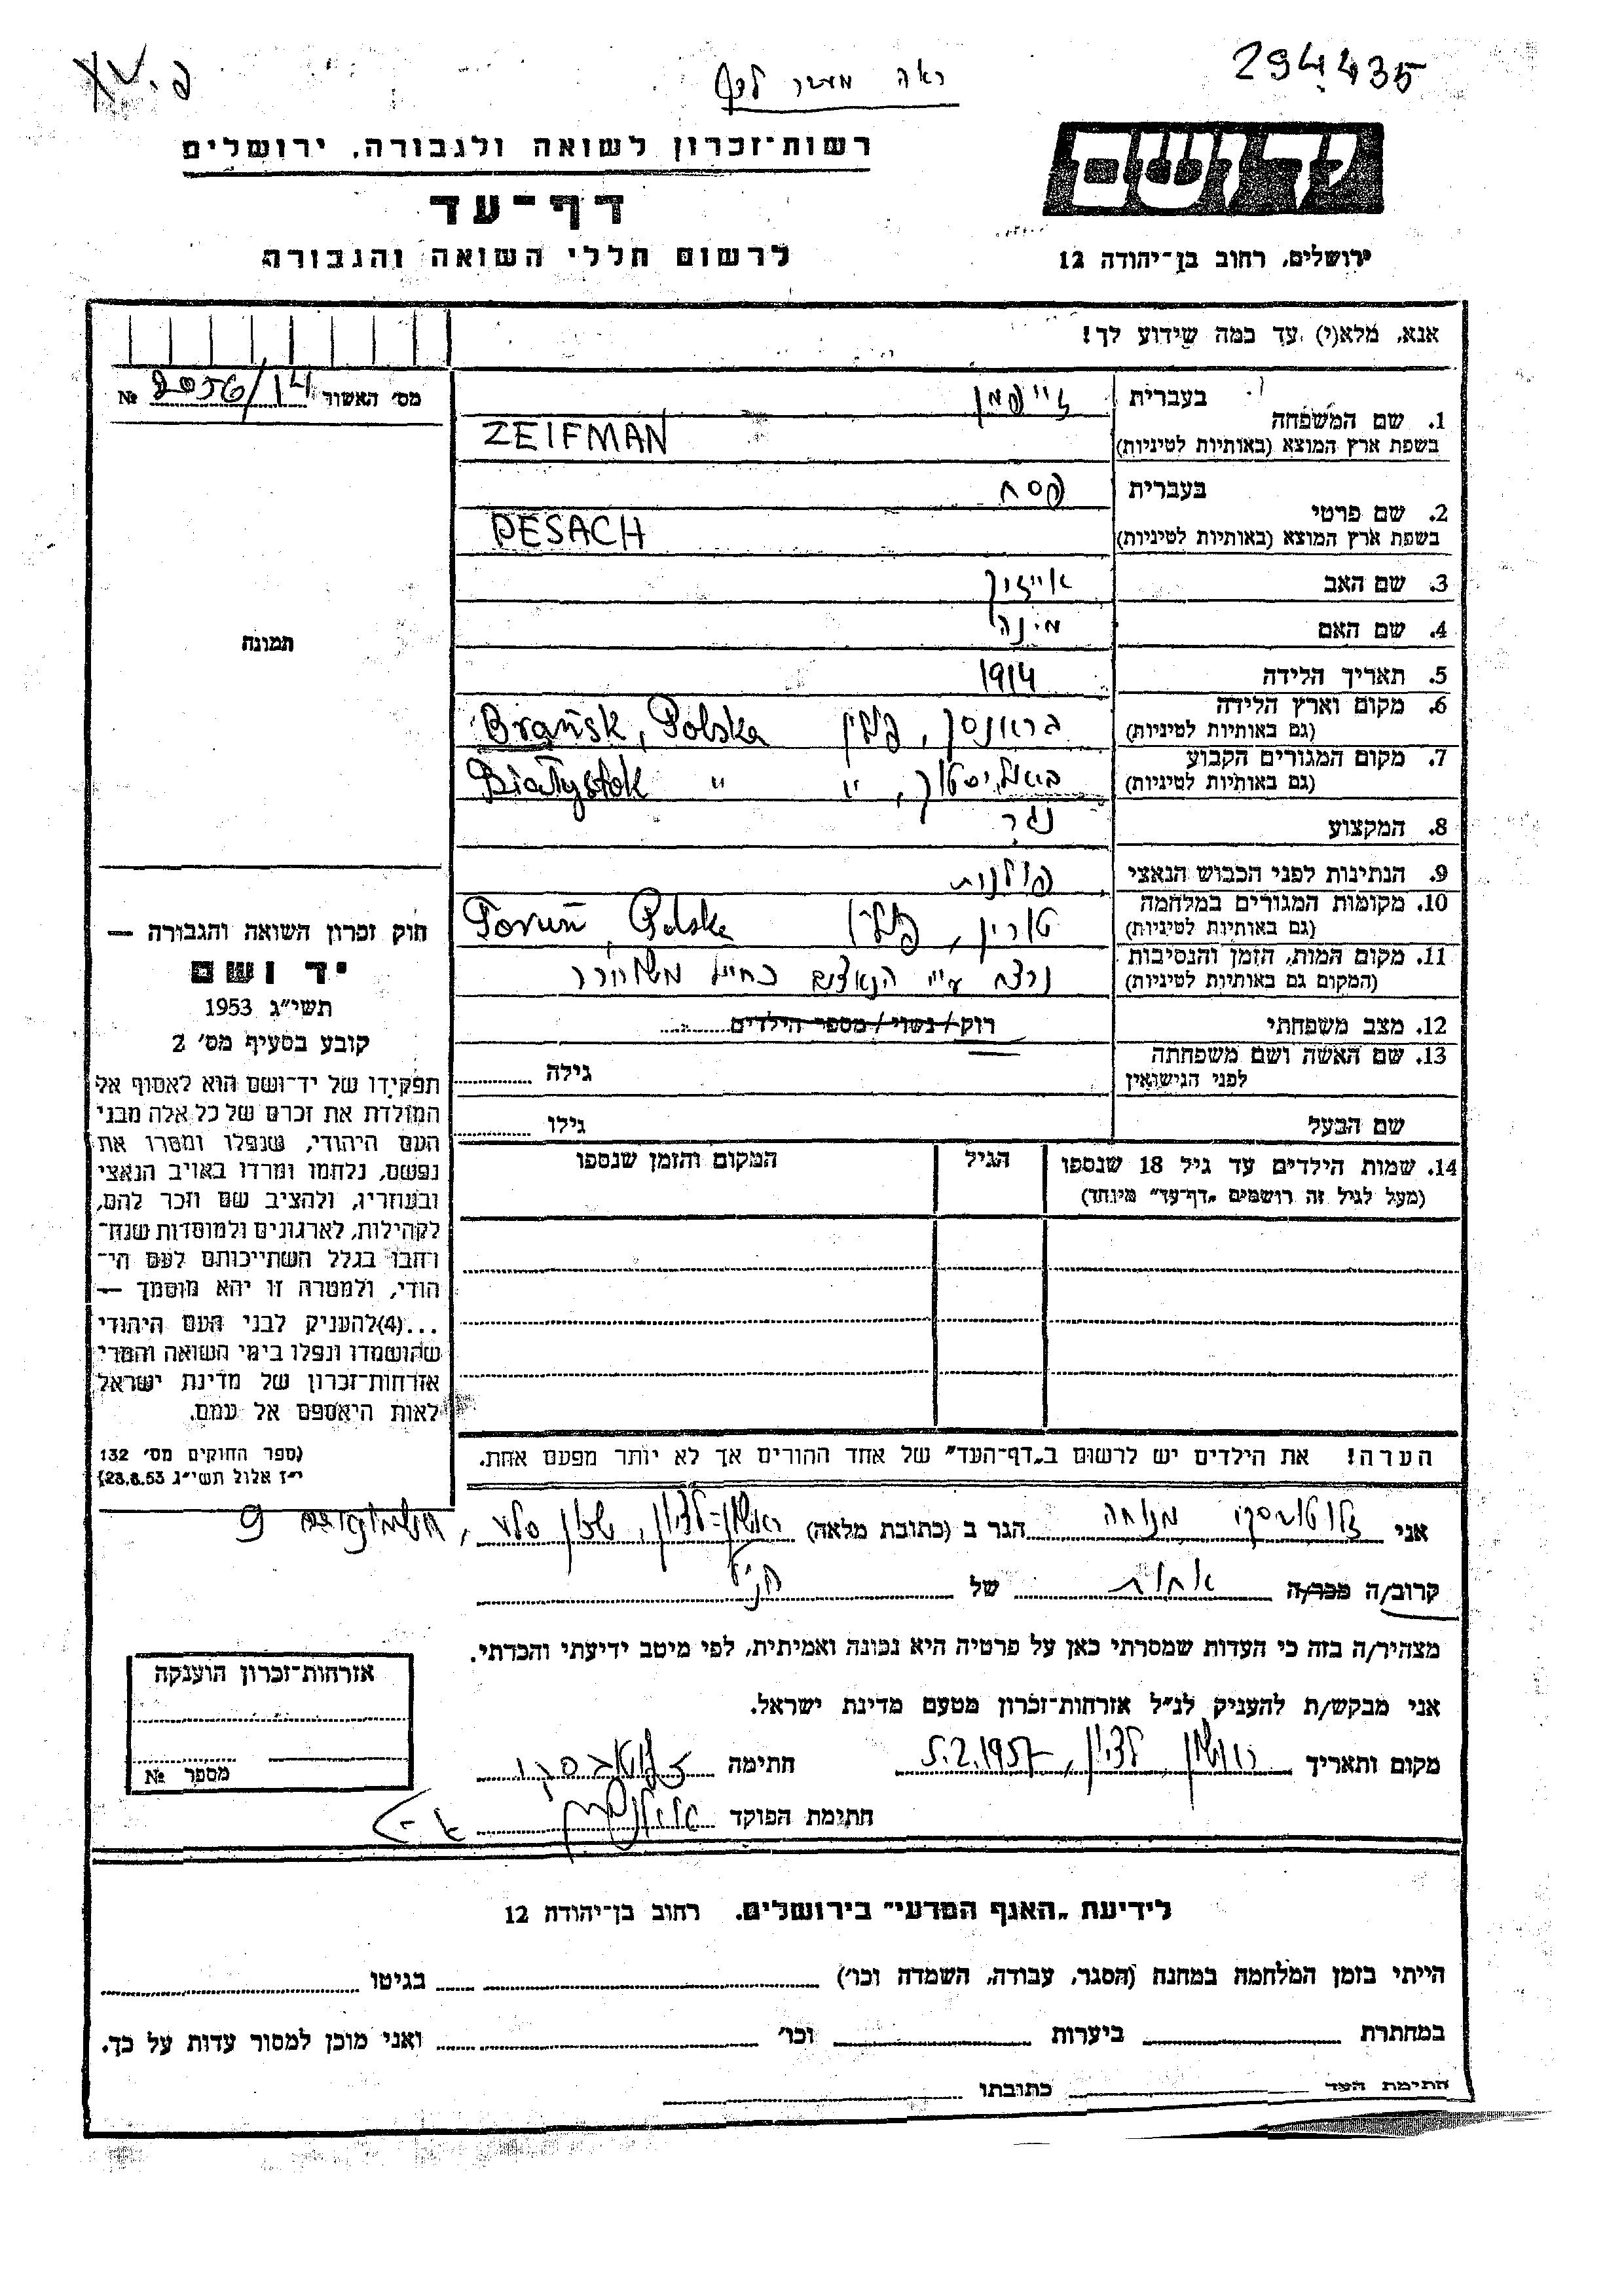 294435
ראה מעבר לדף
פ. XV
יד ושם
ירושלים, רחוב בן־יהודה 12
רשות־זכרון לשואה ולגבורה, ירושלים
דף־עד
לרשום חללי השואה והגבורה
אנא, מלא(י) עד כמה שידוע לך!
מס׳ האשור 2056/14 №
תמונה
1. שם המשפחה בעברית זייפמן
בשפת ארץ המוצא (באותיות לטיניות) ZEIFMAN
2. שם פרטי בעברית פסח
בשפת ארץ המוצא (באותיות לטיניות) PESACH
3. שם האב אייזיק
4. שם האם מינה
5. תאריך הלידה 1914
6. מקום וארץ הלידה בראנסק, פולין Brańsk, Polska
(גם באותיות לטיניות)
7. מקום המגורים הקבוע ביאליסטוק, " Białystok "
(גם באותיות לטיניות)
8. המקצוע נגר
9. הנתינות לפני הכבוש הנאצי פולנית
10. מקומות המגורים במלחמה טורין, פולין Toruń, Polska
(גם באותיות לטיניות)
11. מקום המות, הזמן והנסיבות נרצח ע"י הנאצים כחייל משוחרר
(המקום גם באותיות לטיניות)
12. מצב משפחתי רוק/נשוי/מספר הילדים
13. שם האשה ושם משפחתה גילה
לפני הנישואין
שם הבעל גילו
14. שמות הילדים עד גיל 18 שנספו הגיל המקום והזמן שנספו
(מעל לגיל זה רושמים „דף־עד״ מיוחד)
הערה! את הילדים יש לרשום ב„דף־העד״ של אחד ההורים אך לא יותר מפעם אחת.
חוק זכרון השואה והגבורה —
יד ושם
תשי״ג 1953
קובע בסעיף מס׳ 2
תפקידו של יד־ושם הוא לאסוף אל
המולדת את זכרם של כל אלה מבני
העם היהודי, שנפלו ומסרו את
נפשם, נלחמו ומרדו באויב הנאצי
ובעוזריו, ולהציב שם וזכר להם,
לקהילות, לארגונים ולמוסדות שנח־
רבו בגלל השתייכותם לעם הי־
הודי, ולמטרה זו יהא מוסמך —
...(4)להעניק לבני העם היהודי
שהושמדו ונפלו בימי השואה והמרי
אזרחות־זכרון של מדינת ישראל
לאות היאספם אל עמם.
(ספר החוקים מס׳ 132
י״ז אלול תשי״ג 28.8.53)
אני זלוטובסקי מנוחה הגר ב (כתובת מלאה) ראשון־לציון, שכון סלע, 9
קרוב/ה מכר/ה אחות של הנ"ל
מצהיר/ה בזה כי העדות שמסרתי כאן על פרטיה היא נכונה ואמיתית, לפי מיטב ידיעתי והכרתי.
אני מבקש/ת להעניק לנ״ל אזרחות־זכרון מטעם מדינת ישראל.
מקום ותאריך ראשון לציון, 5.2.1957 חתימה זלוטובסקי
חתימת הפוקד
אזרחות־זכרון הוענקה
מספר №
לידיעת „האגף המדעי״ בירושלים. רחוב בן־יהודה 12
הייתי בזמן המלחמה במחנה (הסגר, עבודה, השמדה וכו׳) בגיטו
במחתרת ביערות וכו׳ ואני מוכן למסור עדות על כך.
חתימת העד כתובתו